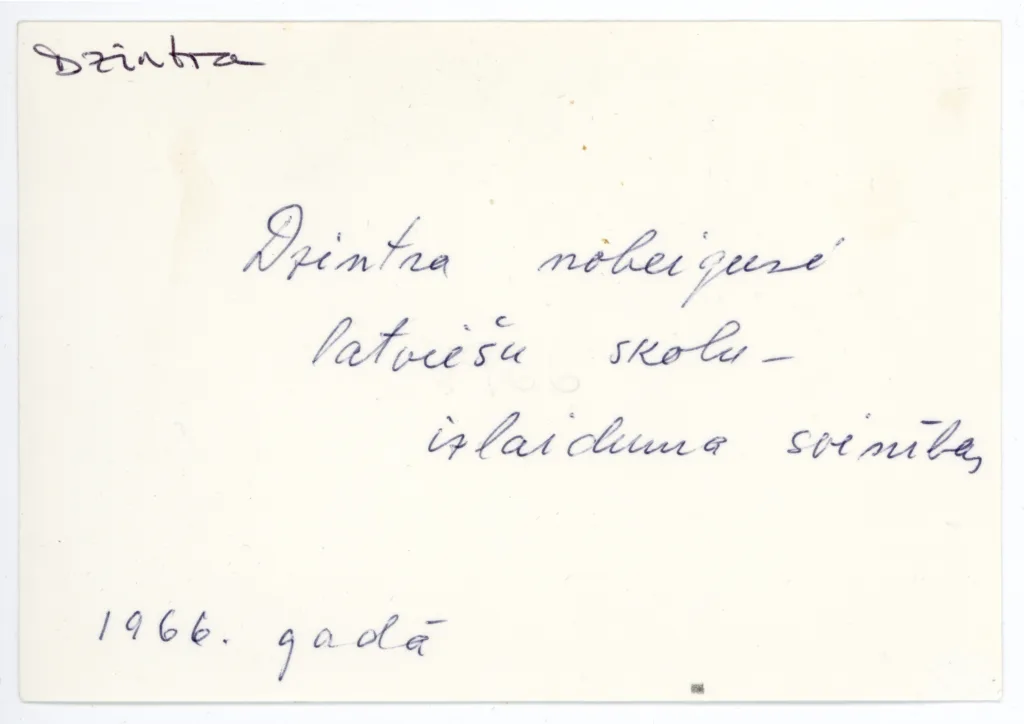 Dzintra
Dzintra nobeigusi
latviešu skolu –
izlaiduma svinības
1966. gadā